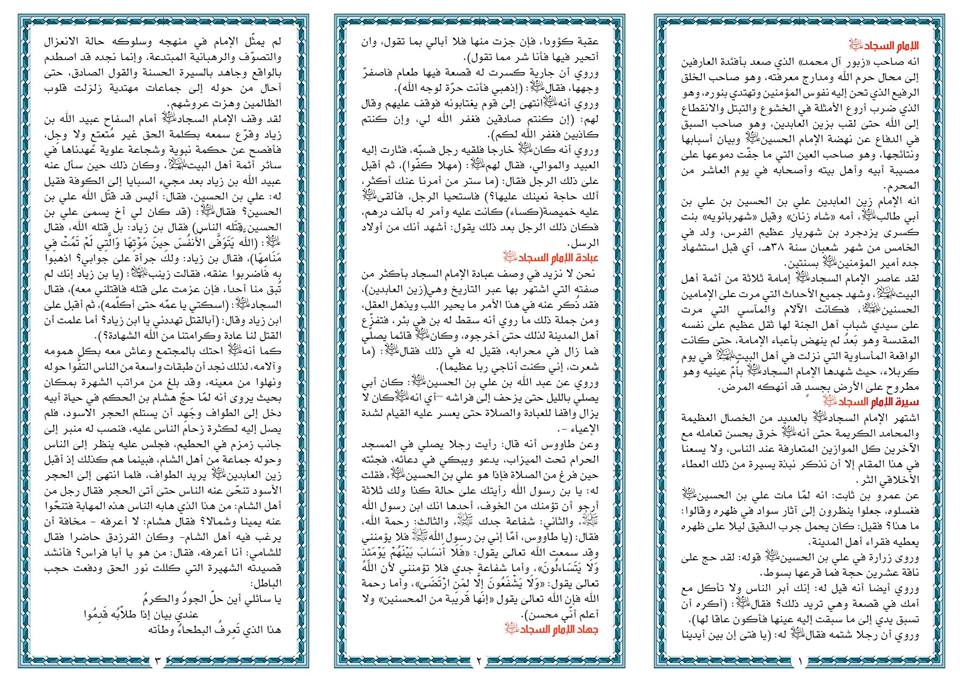 الإمام السجاد
انه صاحب «زبور آل محمد» الذي صعد بأفئدة العارفين
إلى محال حرم الله ومدارج معرفته، وهو صاحب الخلق
الرفيع الذي تحن إليه نفوس المؤمنين وتهتدي بنوره، وهو
الذي ضرب أروع الأمثلة في الخشوع والتبتل والانقطاع
إلى الله حتى لقب بزين العابدين، وهو صاحب السبق
في الدفاع عن نهضة الإمام الحسين وبيان أسبابها
ونتائجها، وهو صاحب العين التي ما جفّت دموعها على
مصيبة أبيه وأهل بيته وأصحابه في يوم العاشر من
المحرم.
انه الإمام زين العابدين علي بن الحسين بن علي بن
أبي طالب، أمه «شاه زنان» وقيل «شهربانويه» بنت
كسرى يزدجرد بن شهريار عظيم الفرس، ولد في
الخامس من شهر شعبان سنة ٣٨هـ، أي قبل استشهاد
جده أمير المؤمنين بسنتين.
لقد عاصر الإمام السجاد إمامة ثلاثة من أئمة أهل
البيت، وشهد جميع الأحداث التي مرت على الإمامين
الحسنين، فكانت الآلام والمآسي التي مرت
على سيدي شباب أهل الجنة لها ثقل عظيم على نفسه
المقدسة وهو بَعدُ لم ينهض بأعباء الإمامة، حتى كانت
الواقعة المأساوية التي نزلت في أهل البيت في يوم
كربلاء، حيث شهدها الإمام السجاد بأمّ عينيه وهو
مطروح على الأرض بجسدٍ قد أنهكه المرض.
سيرة الإمام السجاد
اشتهر الإمام السجاد بالعديد من الخصال العظيمة
والمحامد الكريمة حتى أنه خرق بحسن تعامله مع
الآخرين كل الموازين المتعارفة عند الناس، ولا يسعنا
في هذا المقام إلا أن نذكر نبذة يسيرة من ذلك العطاء
الأخلاقي الثر.
عن عمرو بن ثابت: انه لمّا مات علي بن الحسين
فغسلوه، جعلوا ينظرون إلى آثار سواد في ظهره وقالوا:
ما هذا؟ فقيل: كان يحمل جرب الدقيق ليلا على ظهره
يعطيه فقراء أهل المدينة.
وروى زرارة في علي بن الحسين قوله: لقد حج على
ناقة عشرين حجة فما قرعها بسوط.
وروي أيضا أنه قيل له: إنك أبر الناس ولا تأكل مع
أمك في قصعة وهي تريد ذلك؟ فقال: (أكره أن
تسبق يدي إلى ما سبقت إليه عينها فأكون عاقا لها).
وروي أن رجلا شتمه فقال له: (يا فتى إن بين أيدينا
١
عقبة كؤودا، فإن جزت منها فلا أبالي بما تقول، وان
أتحير فيها فأنا شر مما تقول).
وروي أن جارية كسرت له قصعة فيها طعام فاصفرّ
وجهها، فقال: (إذهبي فأنت حرّة لوجه الله).
وروي أنه انتهى إلى قوم يغتابونه فوقف عليهم وقال
لهم: (إن كنتم صادقين فغفر الله لي، وإن كنتم
كاذبين فغفر الله لكم).
وروي أنه كان خارجا فلقيه رجل فسبّه، فثارت إليه
العبيد والموالي، فقال لهم: (مهلا كفّوا)، ثم أقبل
على ذلك الرجل فقال: (ما ستر من أمرنا عنك أكثر،
ألك حاجة نعينك عليها؟) فاستحيا الرجل، فألقى
عليه خميصة(كساء) كانت عليه وأمر له بألف درهم،
فكان ذلك الرجل بعد ذلك يقول: أشهد أنك من أولاد
الرسل.
عبادة الإمام السجاد
نحن لا نزيد في وصف عبادة الإمام السجاد بأكثر من
صفته التي اشتهر بها عبر التاريخ وهي(زين العابدين)،
فقد ذُكر عنه في هذا الأمر ما يحير اللب ويذهل العقل،
ومن جملة ذلك ما روي أنه سقط له بن في بئر، فتفزّع
أهل المدينة لذلك حتى أخرجوه، وكان قائما يصلي
فما زال في محرابه، فقيل له في ذلك فقال: (ما
شعرت، إني كنت أناجي ربا عظيما).
وروي عن عبد الله بن علي بن الحسين: كان أبي
يصلي بالليل حتى يزحف إلى فراشه –أي انه كان لا
يزال واقفا للعبادة والصلاة حتى يعسر عليه القيام لشدة
الإعياء -.
وعن طاووس أنه قال: رأيت رجلا يصلي في المسجد
الحرام تحت الميزاب، يدعو ويبكي في دعائه، فجئته
حين فرغ من الصلاة فإذا هو علي بن الحسين، فقلت
له: يا بن رسول الله رأيتك على حالة كذا ولك ثلاثة
أرجو أن تؤمنك من الخوف، أحدها انك ابن رسول الله
، والثاني: شفاعة جدك ، والثالث: رحمة الله.
فقال: (يا طاووس، أمّا إني بن رسول الله فلا يؤمنني
وقد سمعت الله تعالى يقول: «فَلَا أَنسَابَ بَيْنَهُمْ يَوْمَئِذٍ
وَلَا يَتَسَاءلُونَ»، وأما شفاعة جدي فلا تؤمنني لأن اللَّهَ
تعالى يقول: «وَلَا يَشْفَعُونَ إِلَّا لِمَنِ ارْتَضَى»، وأما رحمة
الله فإن الله تعالى يقول «إنّها قَرِيبَة من المحسنين» ولا
أعلم أنّي محسن).
جهاد الإمام السجاد
٢
لم يمثّل الإمام في منهجه وسلوكه حالة الانعزال
والتصوّف والرهبانية المبتدعة، وإنما نجده قد اصطدم
بالواقع وجاهد بالسيرة الحسنة والقول الصادق، حتى
أحال من حوله إلى جماعات مهتدية زلزلت قلوب
الظالمين وهزت عروشهم.
لقد وقف الإمام السجاد أمام السفاح عبيد الله بن
زياد وقرّع سمعه بكلمة الحق غير مُتعتع ولا وجل،
فأفصح عن حكمة نبوية وشجاعة علوية عُهدناها في
سائر أئمة أهل البيت، وكان ذلك حين سأل عنه
عبيد الله بن زياد بعد مجيء السبايا إلى الكوفة فقيل
له: علي بن الحسين، فقال: أليس قد قتَل الله علي بن
الحسين؟ فقال: (قد كان لي أخ يسمى علي بن
الحسين قتله الناس) فقال بن زياد: بل قتله الله، فقال
: (اللَّه يَتَوَفَّى الأَنفُسَ حِينَ مَوْتِهَا وَالَّتِي لَمْ تَمُتْ فِي
مَنَامِهَا)، فقال بن زياد: ولك جرأة على جوابي؟ اذهبوا
به فاضربوا عنقه، فقالت زينب: (يا بن زياد إنك لم
تُبق منا أحدا، فإن عزمت على قتله فاقتلني معه)، فقال
السجاد: (اسكتي يا عمّه حتى أكلّمه)، ثم أقبل على
ابن زياد وقال: (أبالقتل تهددني يا ابن زياد؟ أما علمت أن
القتل لنا عادة وكرامتنا من الله الشهادة؟).
كما أنه احتك بالمجتمع وعاش معه بكل همومه
وآلامه، لذلك نجد أن طبقات واسعة من الناس التفّوا حوله
ونهلوا من معينه، وقد بلغ من مراتب الشهرة بمكان
بحيث يروى أنه لمّا حجّ هشام بن الحكم في حياة أبيه
دخل إلى الطواف وجَهِد أن يستلم الحجر الاسود، فلم
يصل إليه لكثرة زحام الناس عليه، فنصب له منبر إلى
جانب زمزم في الحطيم، فجلس عليه ينظر إلى الناس
وحوله جماعة من أهل الشام، فبينما هم كذلك إذ أقبل
زين العابدين يريد الطواف، فلما انتهى إلى الحجر
الأسود تنحّى عنه الناس حتى أتى الحجر فقال رجل من
أهل الشام: من هذا الذي هابه الناس هذه المهابة فتنحّوا
عنه يمينا وشمالا؟ فقال هشام: لا أعرفه - مخافة أن
يرغب فيه أهل الشام- وكان الفرزدق حاضرا فقال
للشامي: أنا أعرفه، فقال: من هو يا أبا فراس؟ فأنشد
قصيدته الشهيرة التي كللت نور الحق ودفعت حجب
الباطل:
يا سائلي أين حلّ الجودُ والكرمُ
عندي بيان إذا طلّابُه قَدِمُوا
هذا الذي تَعرِفُ البطحاءُ وطأته
٣